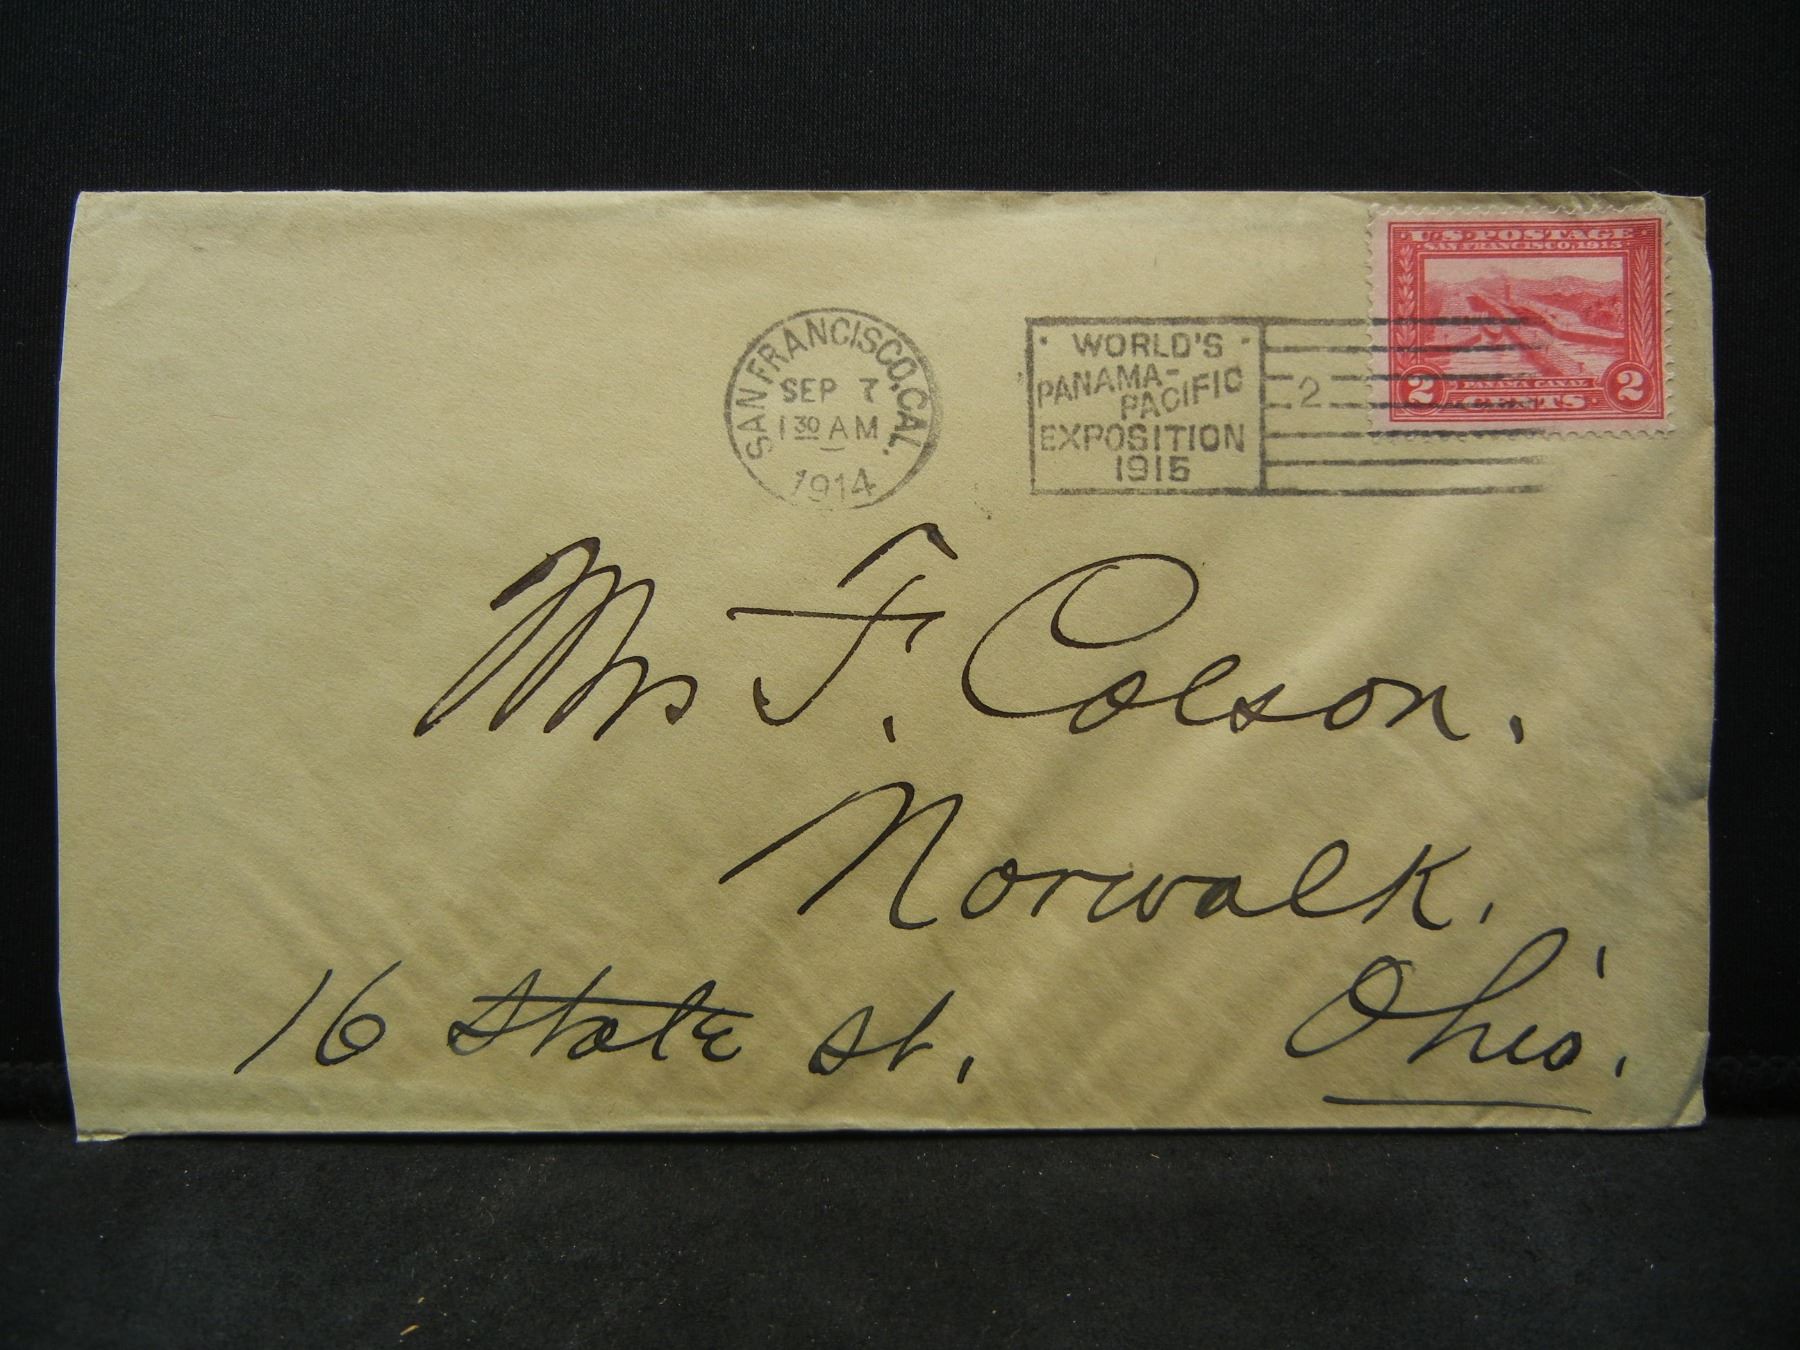 U.S. POSTAGE
SAN FRANCISCO, 1915
PANAMA CANAL
2 CENTS 2
SAN FRANCISCO, CAL.
SEP 7
1 30 AM
1914
WORLD'S
PANAMA-
PACIFIC
EXPOSITION
1915
2
Mrs F. Colson.
Norwalk.
16 State St. Ohio.